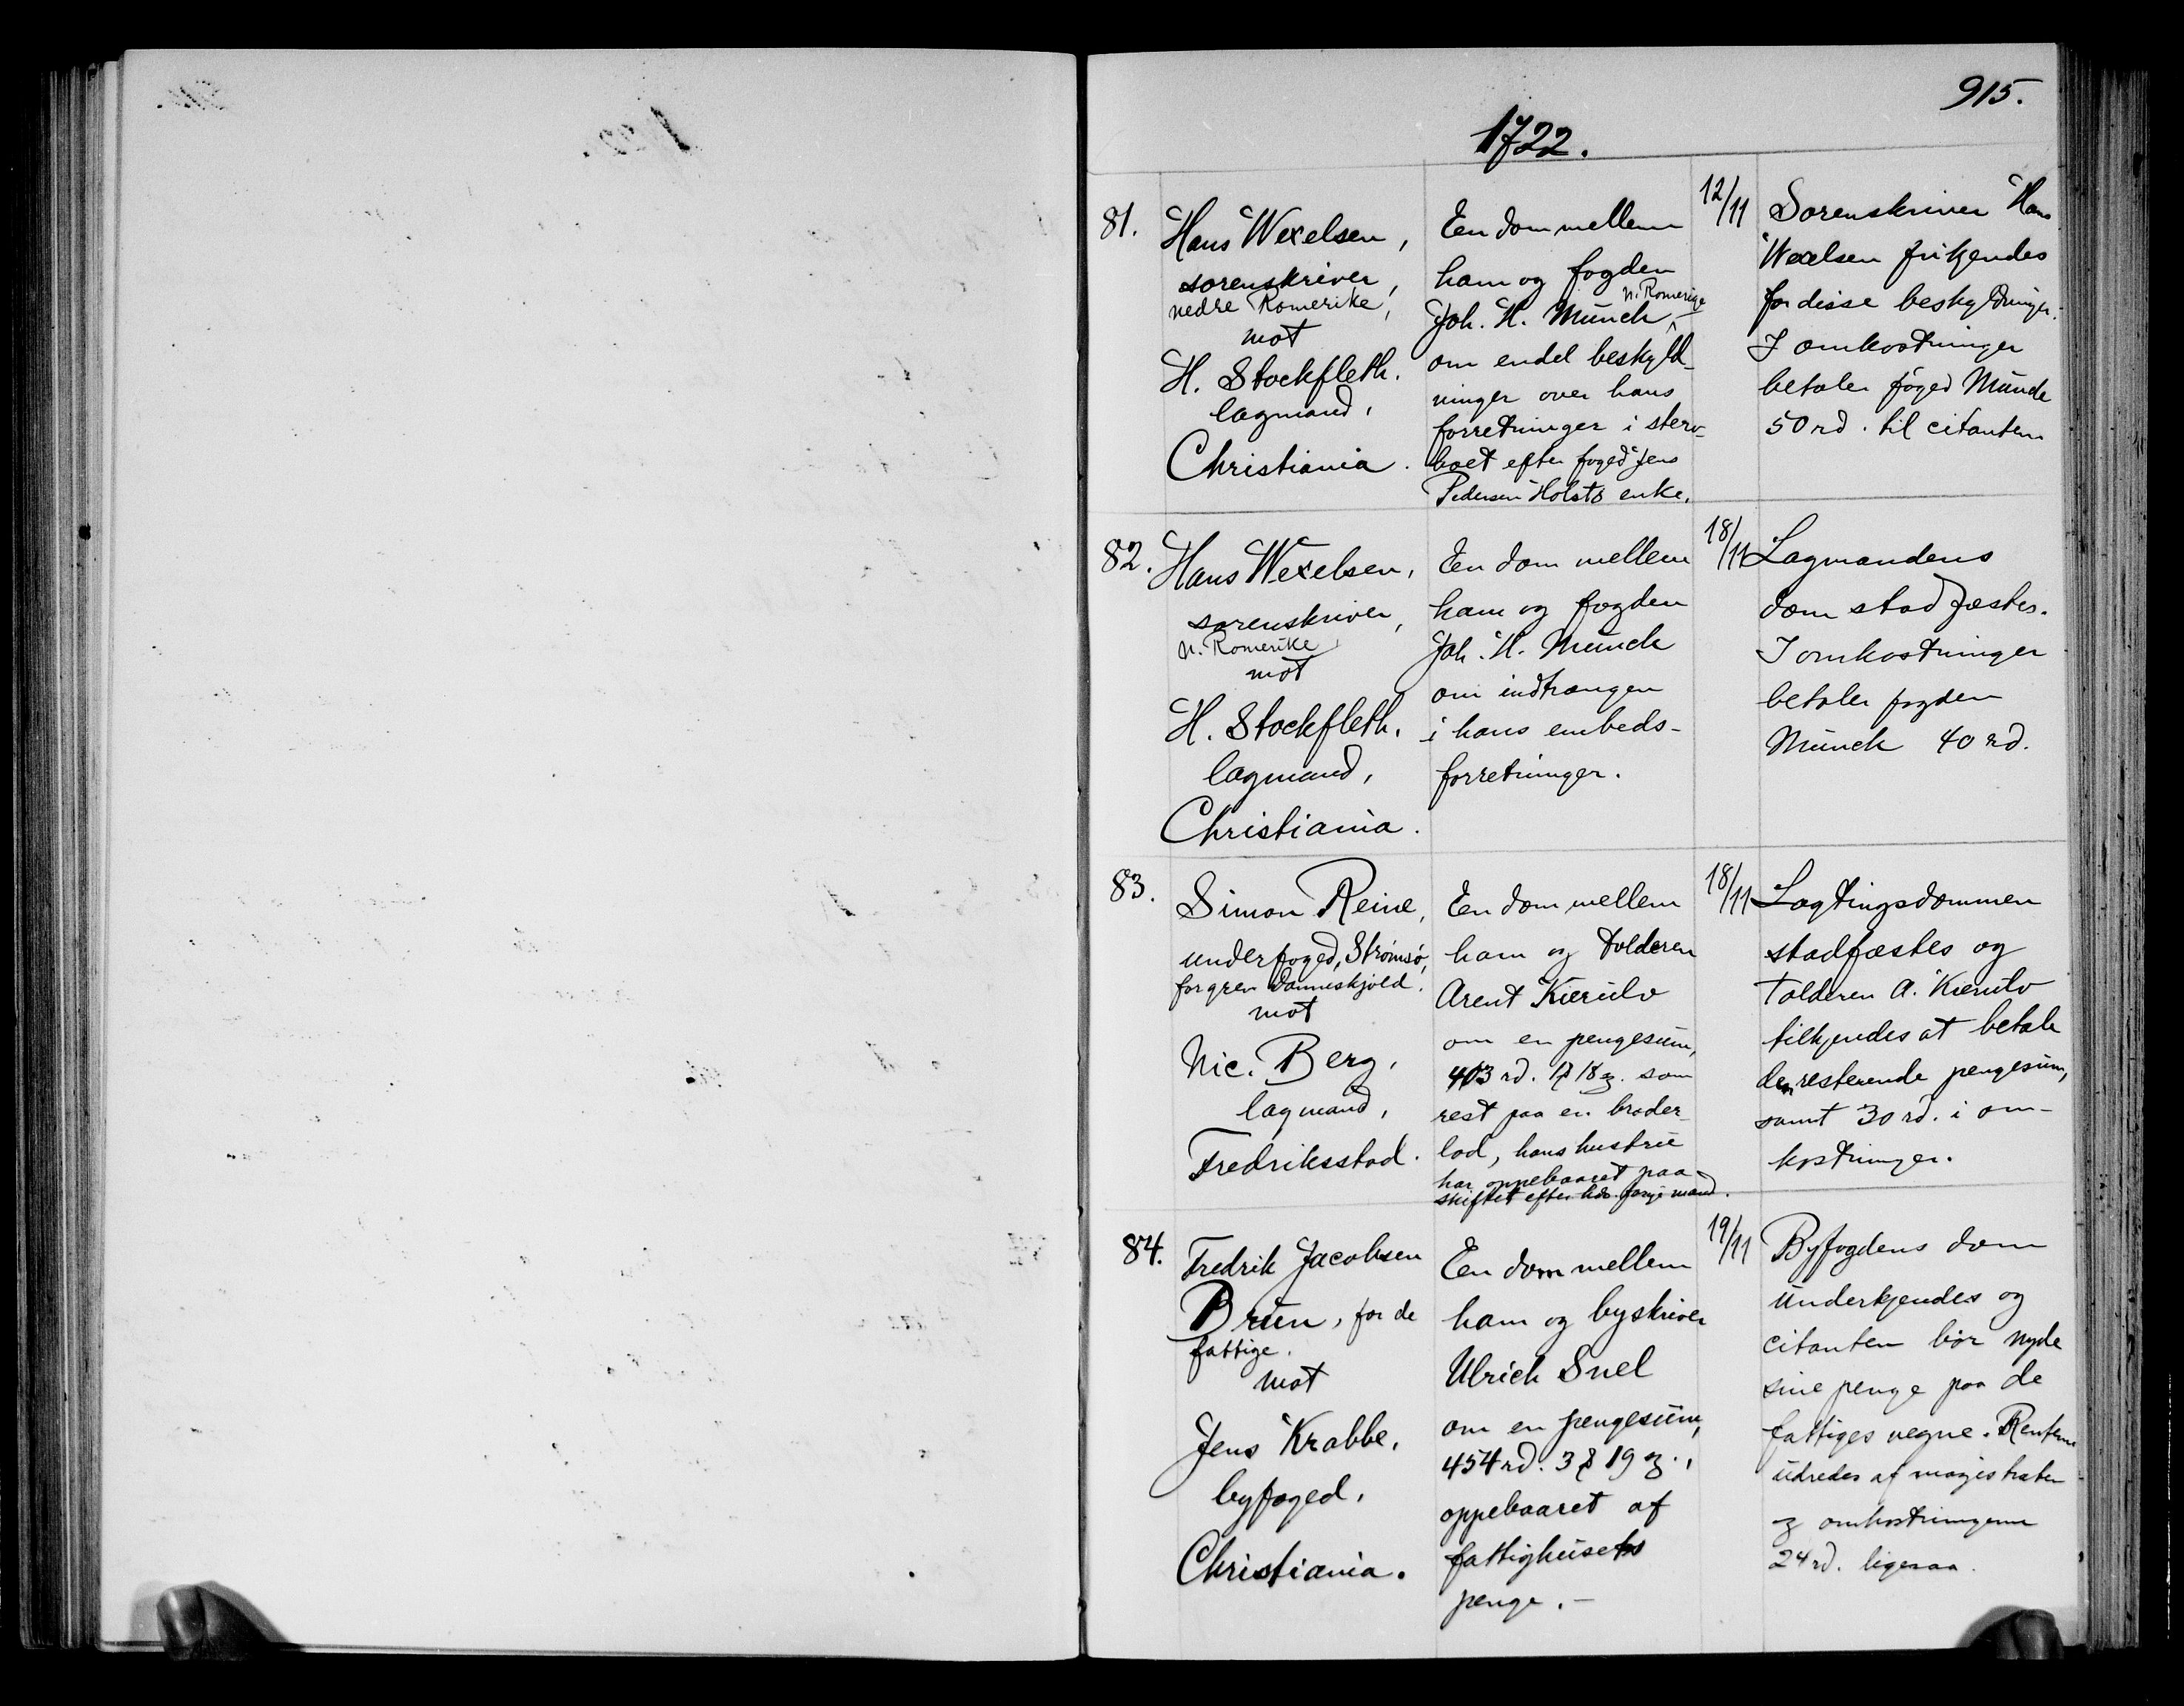 915.
1722.
81.
Hans Wexelsen,
sorenskriver,
nedre Romerike,
mot
H. Stockfleth.
lagmand,
Christiania.
En dom mellem
ham og fogden
n. Romerige
Joh. H. Münch,
om endel beskyld-
ninger over hans
forretninger i sterv-
boet efter foged Jens
Pedersen Holsts enke.
12/11
Sorenskriver Hans
Wexelsen frikjendes
for disse beskyldninger.
I omkostninger
betaler foged Münch
50 rd. til citanten
82.
Hans Wexelsen,
sorenskriver,
n. Romerike
mot
H. Stockfleth.
lagmand,
Christiania.
En dom mellem
ham og fogden
Joh. H. Münch
om indtrængen
i hans embeds-
forretninger.
18/11
Lagmandens
dom stadfæstes.
I omkostninger
betaler fogden
Münch 40 rd.
83.
Simon Reine,
underfoged, Strømsø,
for grev Danneskjold.
mot
Nic. Berg,
lagmand,
Fredriksstad.
En dom mellem
ham og tolderen
Arent Kierulv
om en pengesum,
403 rd. 1 18 som
rest paa en broder-
lod, hans hustru
har oppebaaret paa
skiftet efter forrige mand.
18/11
Lagtingsdommen
stadfæstes og
Tolderen A. Kierulv
tilkjendes at betale
den resterende pengesum,
samt 30 rd. i om-
kostninger.
84.
Fredrik Jacobsen
Brun, for de
fattige.
mot
Jens Krabbe,
byfoged,
Christiania.
En dom mellem
ham og byskriver
Ulrich Snel
om en pengesum,
454 rd. 3 19
oppebaaret af
fattighusets
penge.-
19/11
Byfogdens dom
underkjendes og
citanten bør nyde
sine penge paa de
fattiges vegne. Renterne
udredes af magistraten
og omkostningerne
24 rd. ligesaa.